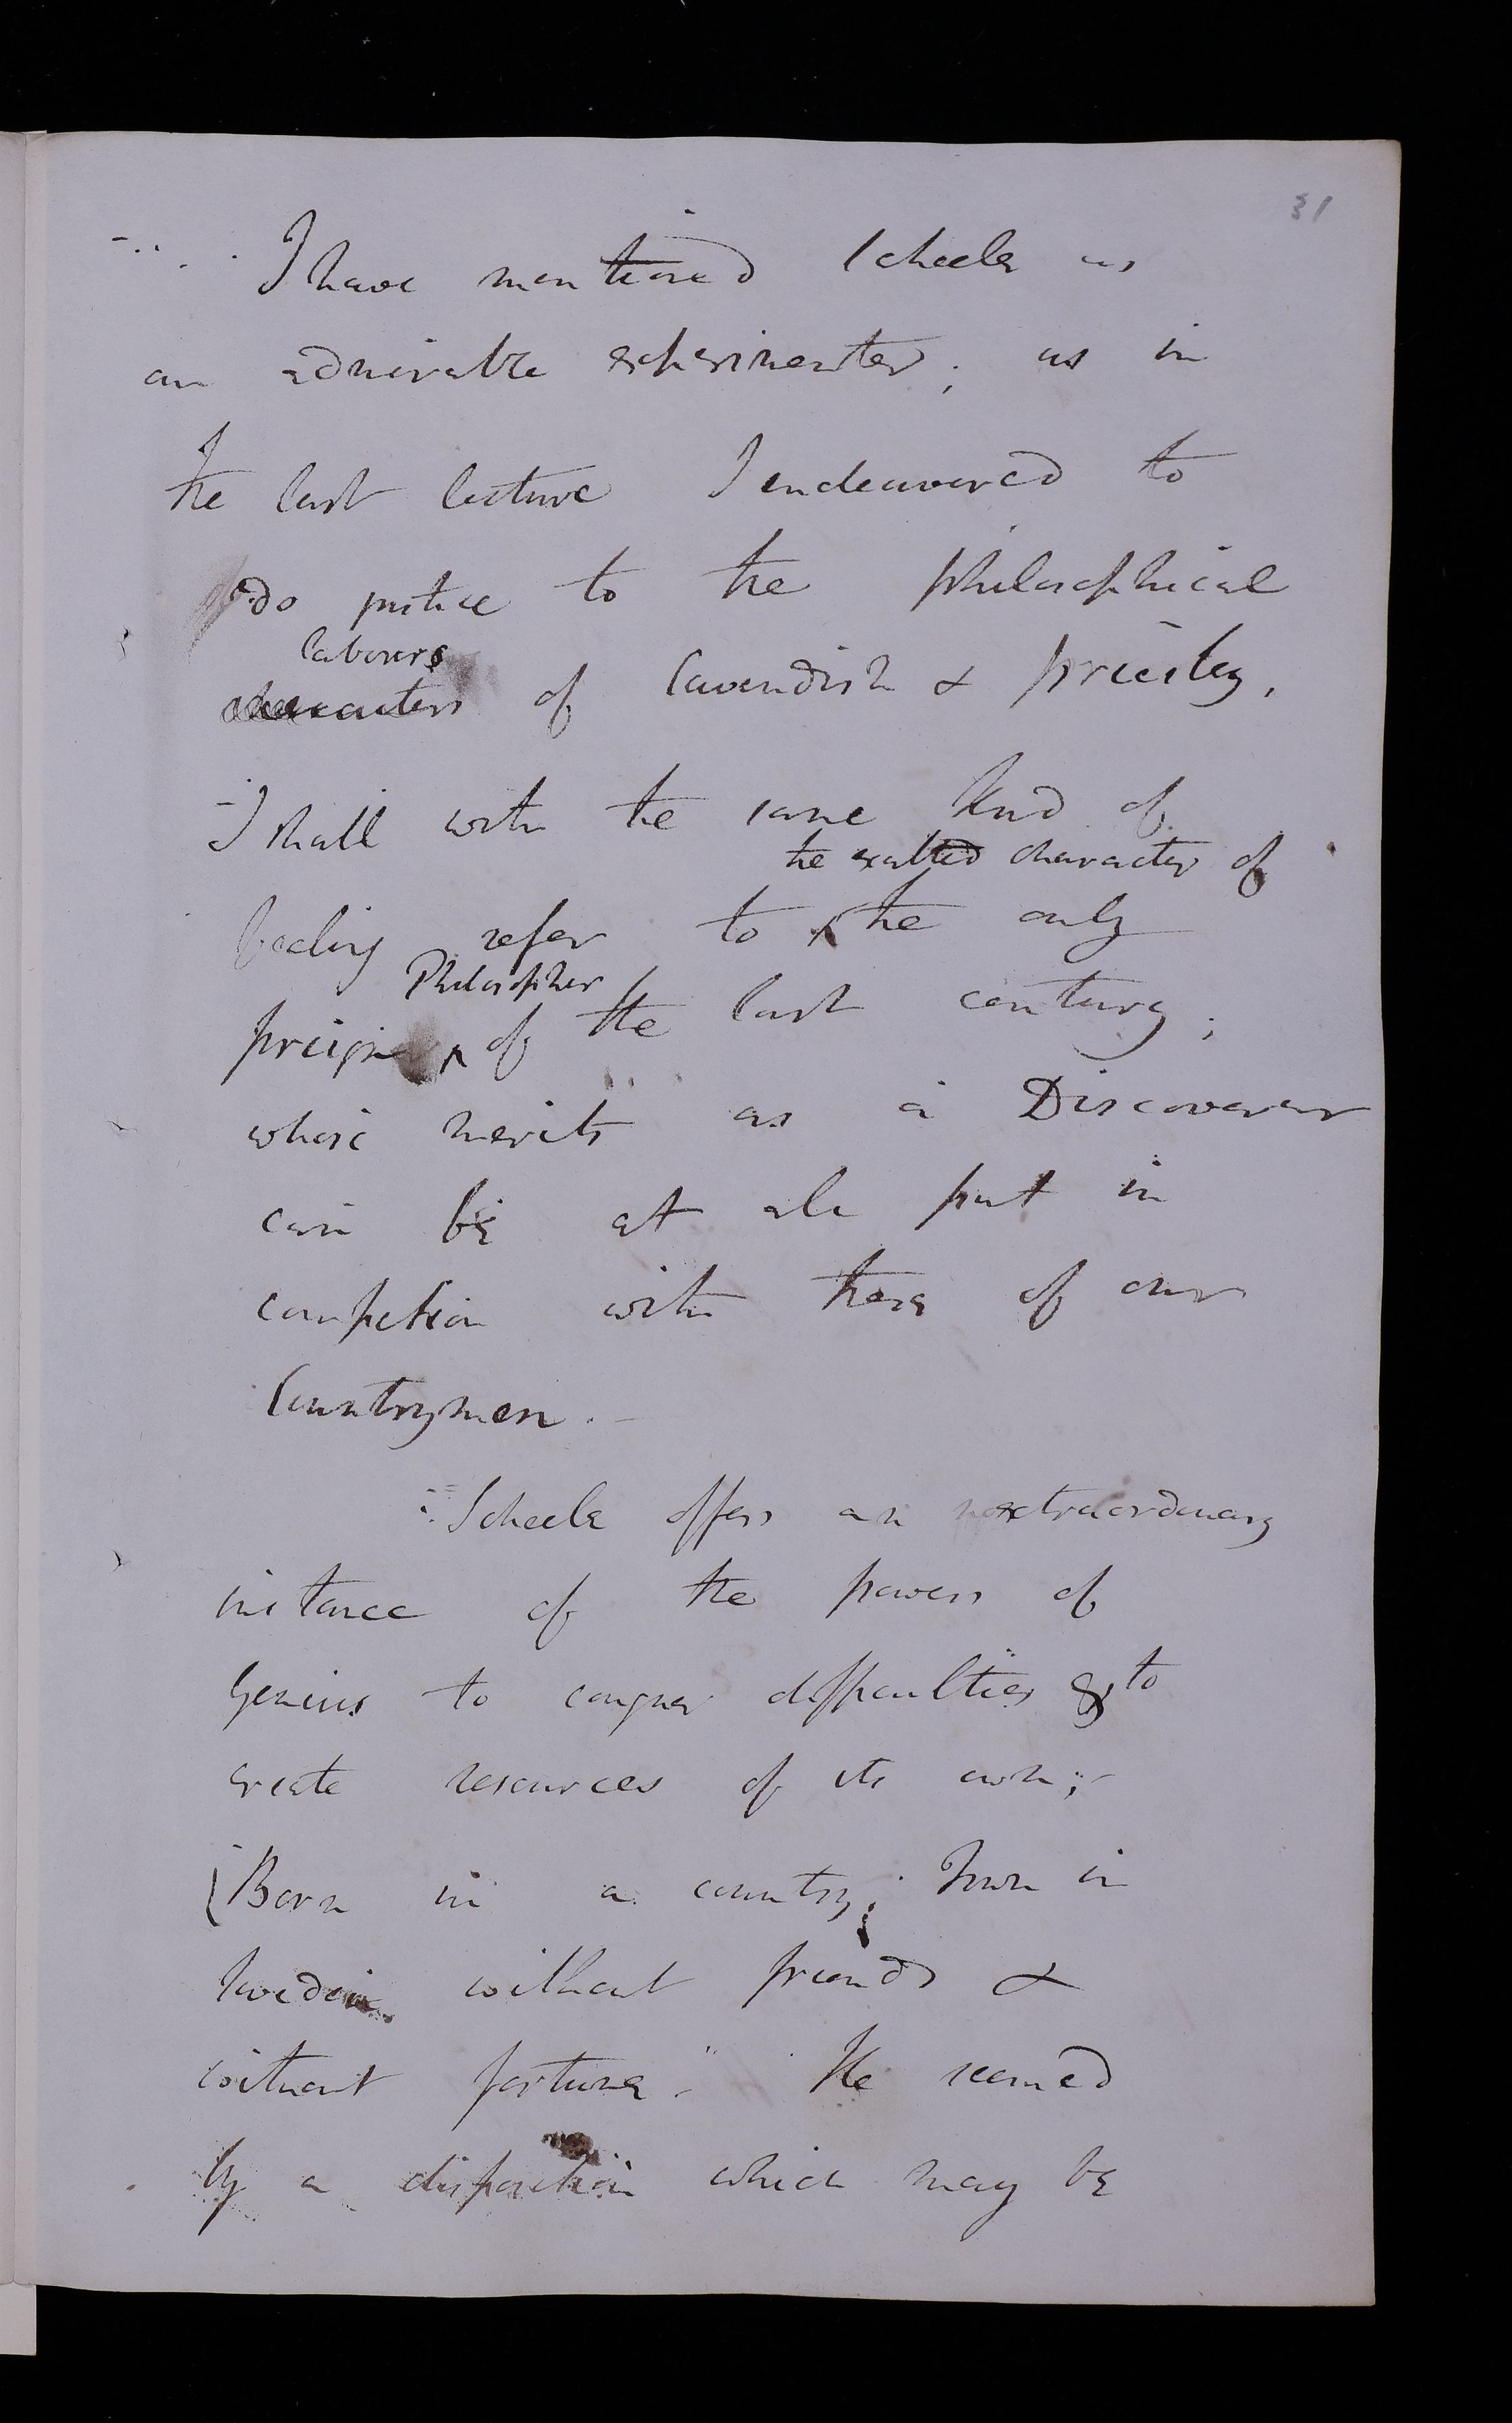 31
I have mentioned Scheele as
an admirable experimenter; as in
the last lecture I endeavored to
do justice to the philosophical
labours
characters of Cavendish & Priestley,
I shall with the same kind of
the exalted character of
feeling refer to the only
Philosopher
foreign of the last century;
whose merits as a Discoverer
can be at all put in
competion with those of our
Countrymen.-
Scheele offers an extraordinary
instance of the powers of
Genius to conquer difficulties & to
create resources of its own;-
(Born in a country; Town in
Sweden without friends &
without fortune. - He seemed
by a disposition which may be